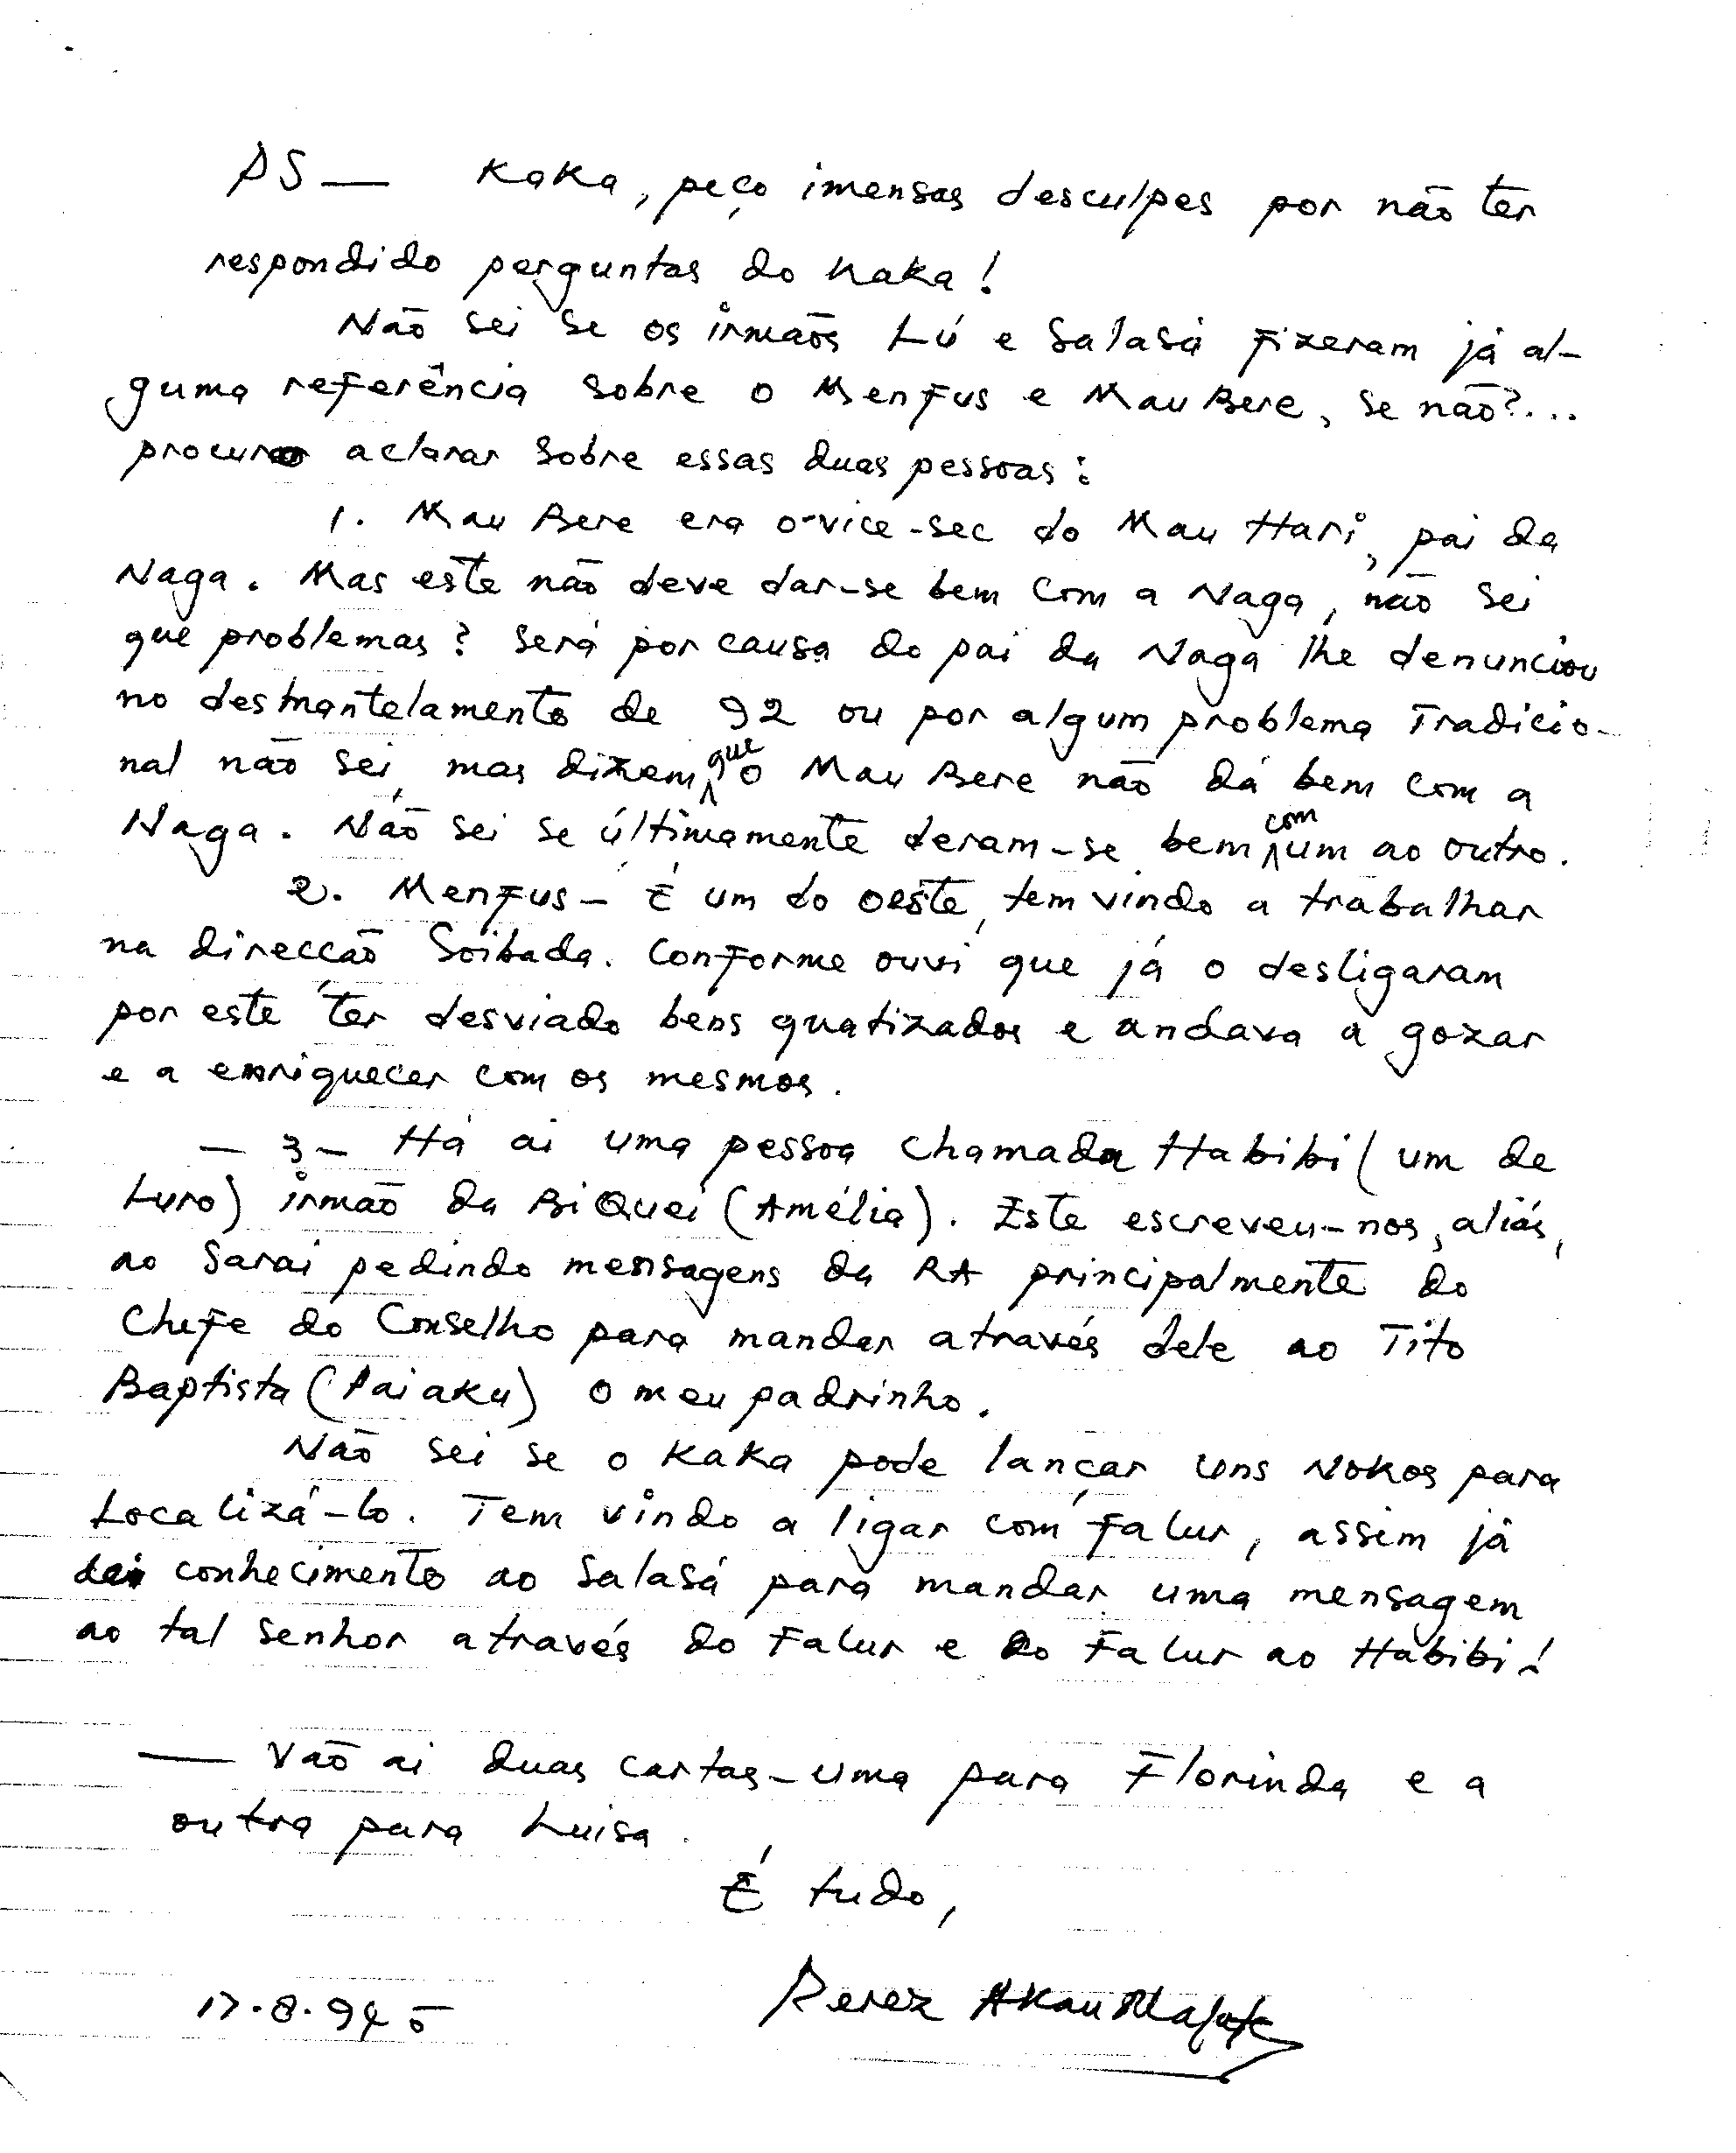 PS — Kaka, peço imensas desculpes por não ter
respondido perguntas do Kaka!
Não sei se os irmãos Lú e Salasá fizeram já al-
guma referência sobre o Menfus e Mau Bere, se não?...
procuro aclarar sobre essas duas pessoas:
1. Mau Bere era o vice-sec do Mau Hari, pai da
Naga. Mas este não deve dar-se bem com a Naga, não sei
que problemas? Será por causa do pai da Naga lhe denunciou
no desmantelamento de 92 ou por algum problema Tradicio-
nal não sei, mas dizem que o Mau Bere não dá bem com a
Naga. Não sei se últimamente deram-se bem com um ao outro.
2. Menfus - É um do oeste, tem vindo a trabalhar
na direcção Soibada. Conforme ouvi que já o desligaram
por este ter desviado bens quotizados e andava a gozar
e a enriquecer com os mesmos.
— 3 - Há ai uma pessoa chamada Habibi (um de
Luro) irmão da BiQuei (Amélia). Este escreveu-nos, aliás,
ao Sarai pedindo mensagens da RA principalmente do
Chefe do Conselho para mandar através dele ao Tito
Baptista (Paiaku) o meu padrinho.
Não sei se o Kaka pode lançar uns Nokos para
Localizá-lo. Tem vindo a ligar com Falur, assim já
dei conhecimento ao Salasá para mandar uma mensagem
ao tal senhor através do Falur e do Falur ao Habibi!
— Vão ai duas cartas - uma para Florinda e a
outra para Luisa.
É tudo,
17.8.94
Perez Akau